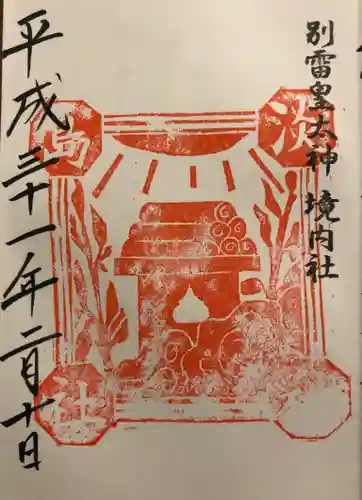 別雷皇太神境内社
淡
島
社
平成三十一年二月十日